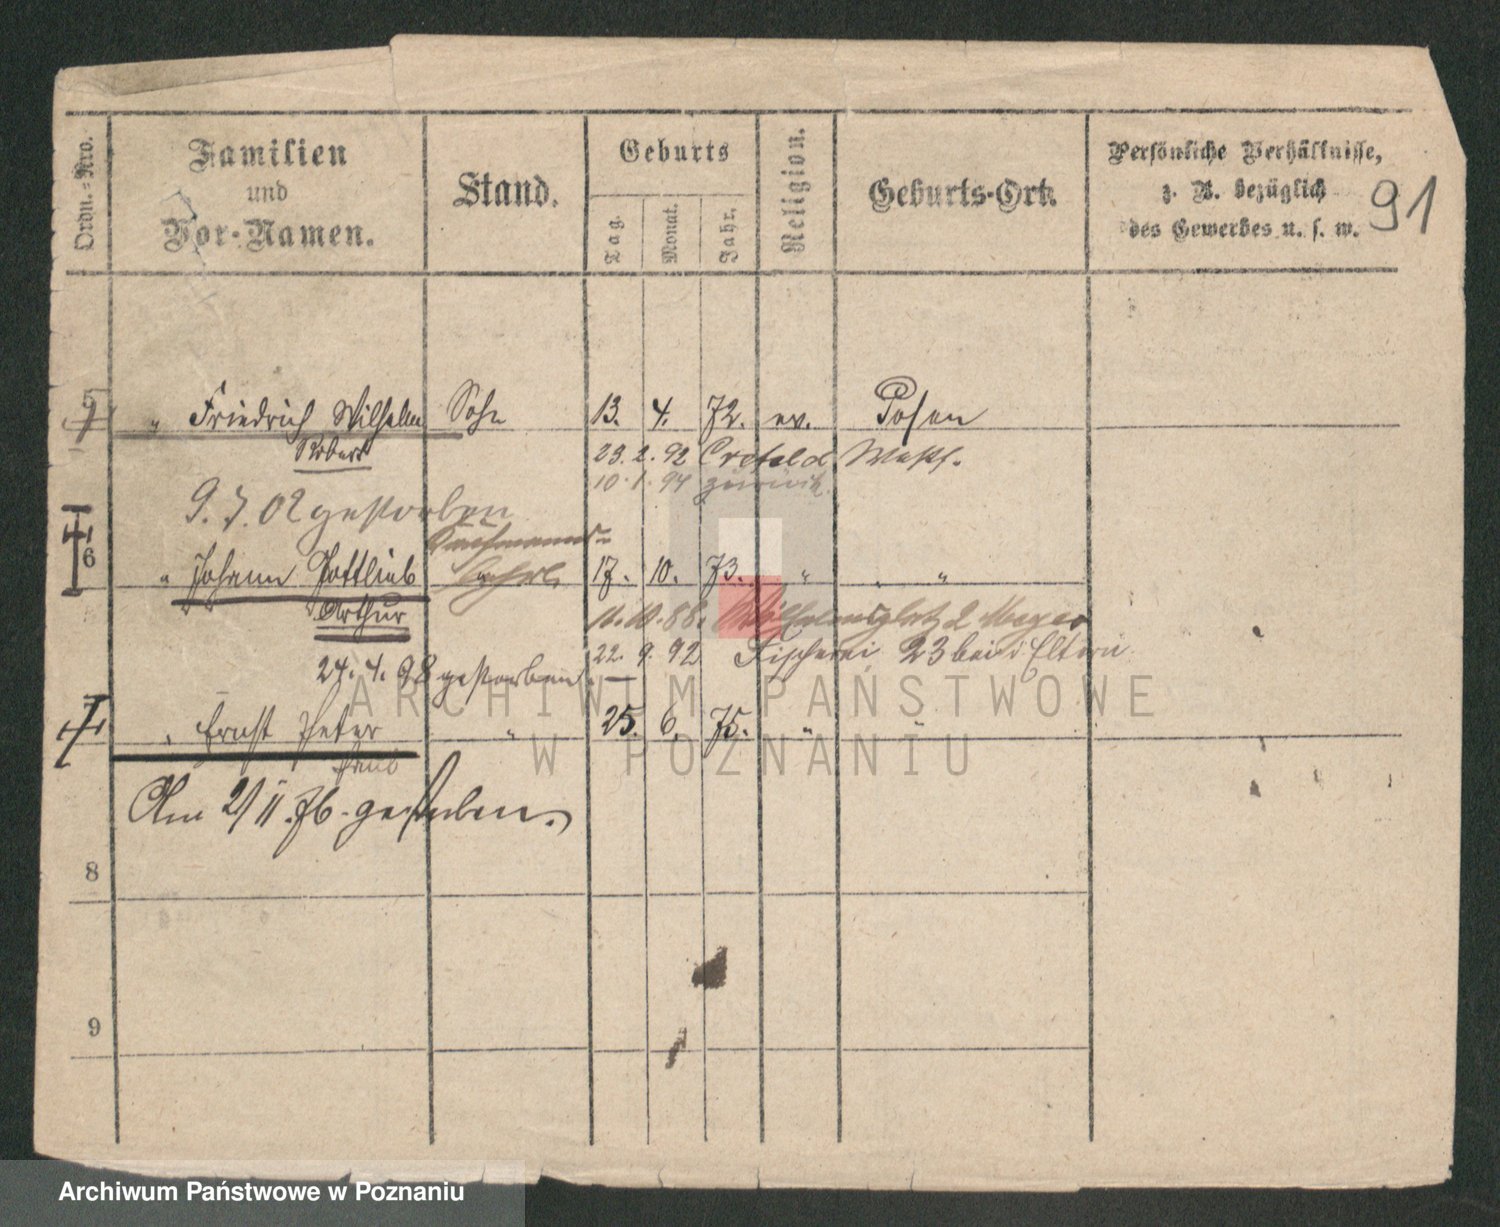 Ordn.-Nro.
Familien
und
Vor-Namen.
Stand.
Geburts
Tag.
Monat.
Jahr.
Religion.
Geburts-Ort.
Persönliche Verhältnisse,
z. B. bezüglich
des Gewerbes u. s. w.
91
5 " Friedrich Wilhelm Sohn 13. 4. 72. ev. Posen
Robert 23. 2. 92 Crefeld
10. 1. 94 zurück
9. 7. 02 gestorben
Kaufmanns-
6 " Johann Gottlieb Lehrl. 17. 10. 73. " "
Arthur 11. 10. 88. Wilhelmsplatz 2
22. 9. 92 Fischerei 23 bei d Eltern
24. 4. 98 gestorben
7 " Ernst Peter " 25. 6. 75. " "
Paul
Am 2/II. 76. gestorben.
8
9
ARCHIWUM PAŃSTWOWE
W POZNANIU
Archiwum Państwowe w Poznaniu